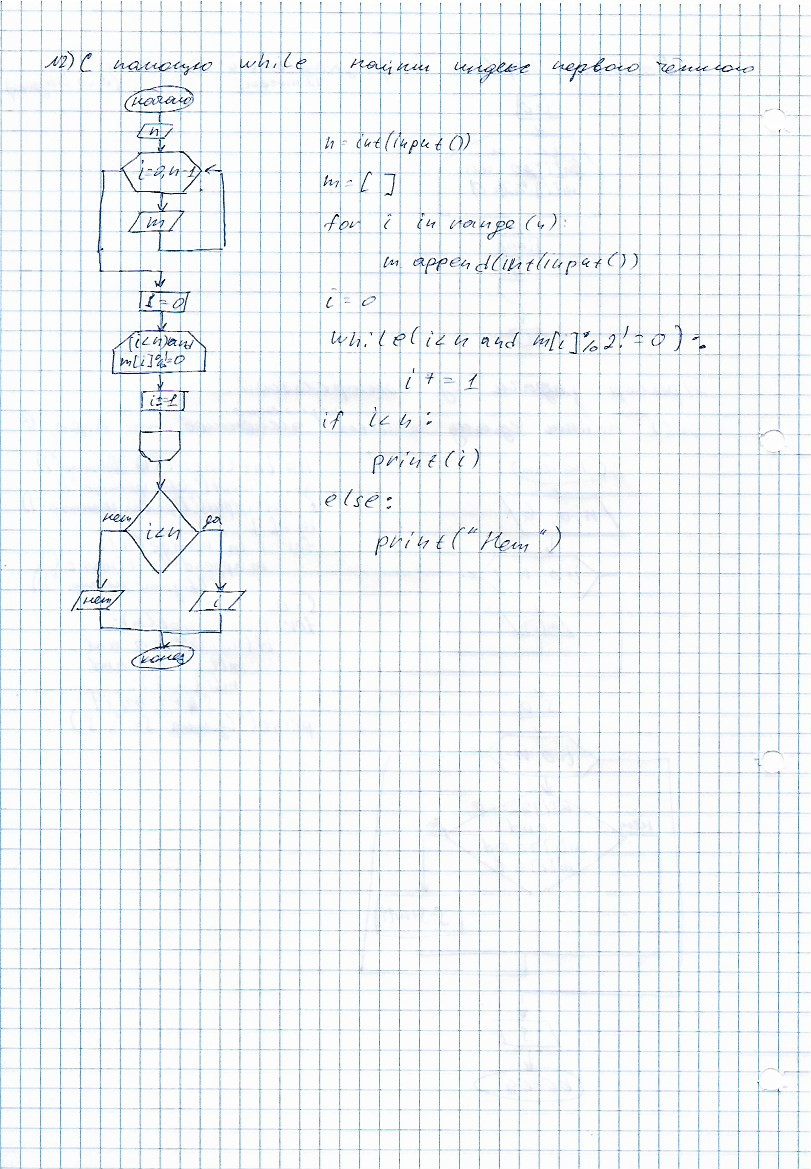 №2) С помощью while найти индекс первого чётного
начало
n
i=0,n-1
m
i=0
(i<n)and
m[i]%!=0
i+=1
i<n
нет
да
нет
i
конец
n=int(input())
m=[ ]
for i in range(n):
m append(int(input())
i=0
while(i<n and m[i]%2!=0):
i+=1
if i<n:
print(i)
else:
print("Нет")